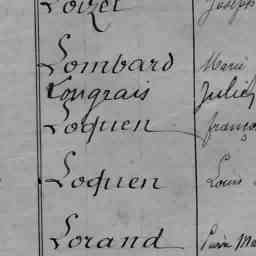 Loizel Joseph
Lombard Marie
Longrais Julie
Loquen franço
Loquen Louis
Lorand